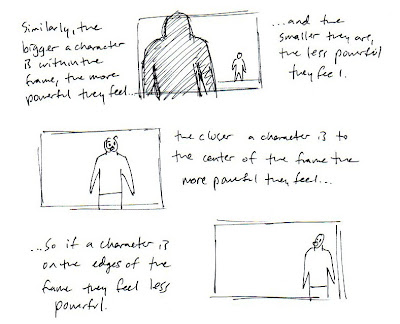 Similarly, the
bigger a character
is within the
frame, the more
powerful they feel...
...and the
smaller they are,
the less powerful
they feel.
the closer a character is to
the center of the frame the
more powerful they feel...
...So if a character is
on the edges of the
frame they feel less
powerful.